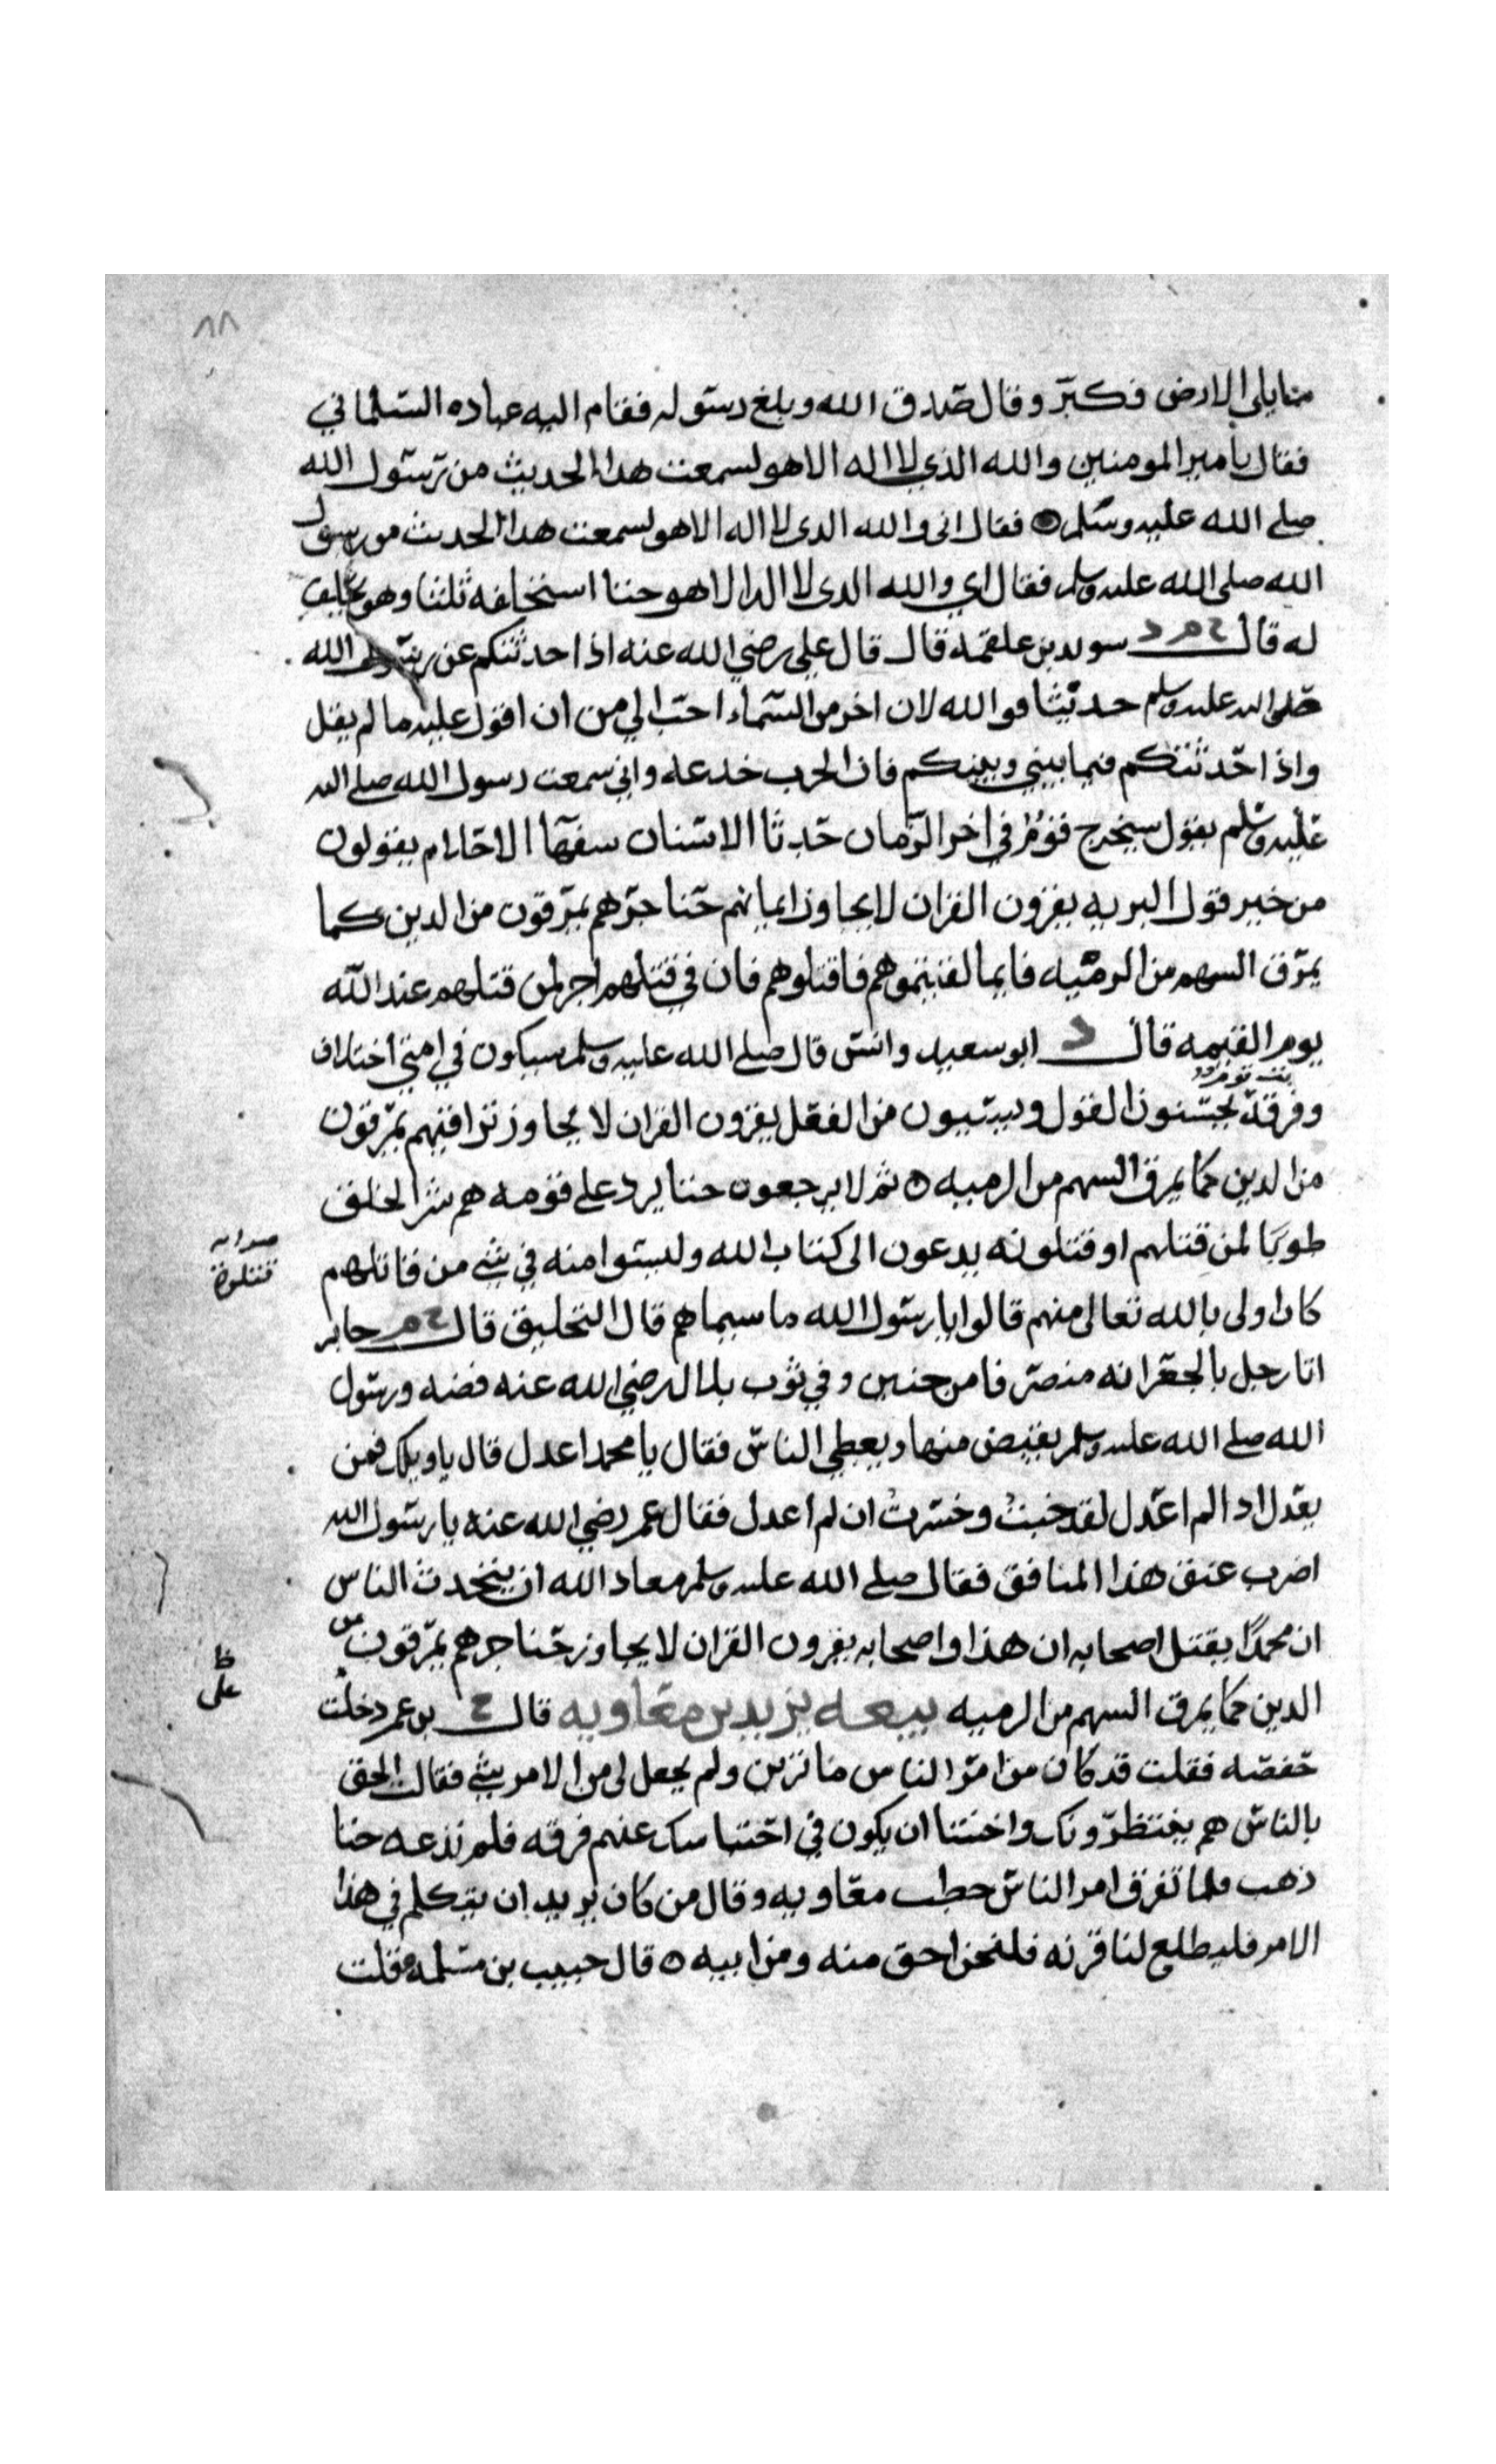 ٨٨
مما يلي الارض فكبر وقال صدق الله وبلغ رسوله فقام اليه عباده السلماني
فقال يا مير المومنين والله الذي لا اله الا هو لسمعت هذا الحديث من رسول الله
صلى الله عليه وسلم فقال اني والله الدى لا اله الا هو لسمعت هدا الحديث من رسول
الله صلى الله عليه وسلم فقال اي والله الدى لا اله الا هو حتا استخلفه ثلثا وهو يحلف
له قال خ م د سويد بن علقمه قال قال علي رضي الله عنه اذا حدثتكم عن رسول الله
صلى الله عليه وسلم حديثا فوالله لان اخر من السماء احب الي من ان اقول عليه ما لم يقل
واذا حدثتكم فيما بيني وبينكم فان الحرب خدعه واني سمعت رسول الله صلى الله
عليه وسلم يقول سيخرج قوم في اخر الزمان حدثا الاسنان سفها الاحلام يقولون
من خير قول البريه يقرون القران لا يجاوز ايمانهم حناجرهم يمرقون من الدين كما
يمرق السهم من الرميه فايما لقيتموهم فاقتلوهم فان في قتلهم اجر لمن قتلهم عند الله
يوم القيمه قال د ابو سعيد وانس قال صلى الله عليه وسلم سيكون في امتي اختلاف
وفرقة يحسنون القول ويسيون من الفعل يقرون القران لا يجاوز تراقيهم يمرقون
من الدين كما يمرق السهم من الرميه ه ثم لا يرجعون حتا يرد على فوقه هم شر الخلق
طوبا لمن قتلهم او قتلونه يدعون الى كتاب الله وليسوا منه في شي من قاتلهم
صوابه
قتلوه
كان اولى بالله تعالى منهم قالوا يا رسول الله ما سيماهم قال التحليق قال خ م جابر
اتا رجل بالجعرانه منصرفا من حنين وفي ثوب بلال رضي الله عنه فضه ورسول
الله صلى الله عليه وسلم يقبض منها ويعطي الناس فقال يا محمد اعدل قال يا ويلك فمن
يعدل ادا لم اعدل لقد خبت وخسرت ان لم اعدل فقال عمر رضي الله عنه يا رسول الله
اضرب عنق هذا المنافق فقال صلى الله عليه وسلم معاد الله ان يتحدث الناس
ان محمدا يقتل اصحابه ان هذا واصحابه يقرون القران لا يجاوز حناجرهم يمرقون من
الدين كما يمرق السهم من الرميه بيعه يزيد بن معاويه قال خ بن عمر دخلت
ظ
على
حفصه فقلت قد كان من امر الناس ما ترين ولم يجعل لي من الامر شي فقال الحق
بالناس هم ينتظرونك واخشا ان يكون في احتباسك عنهم فرقه فلم تدعه حتا
ذهب فلما تفرق امر الناس خطب معاويه وقال من كان يريد ان يتكلم في هذا
الامر فليطلع لنا قرنه فلنحن احق منه ومن ابيه ه قال حبيب بن مسلمه فقلت